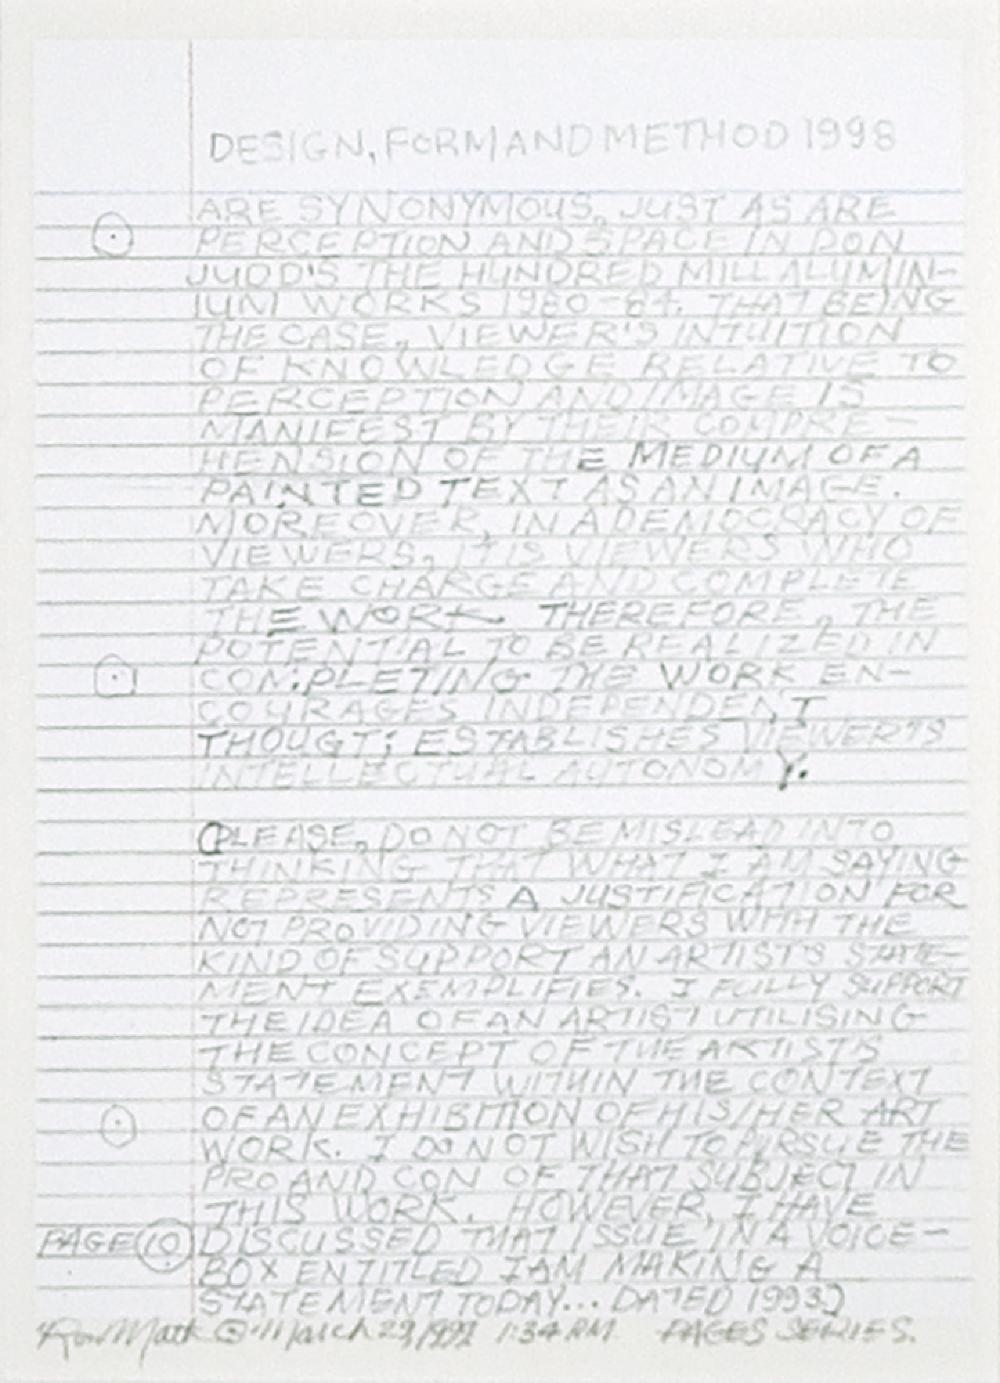 DESIGN, FORM AND METHOD 1998
ARE SYNONYMOUS, JUST AS ARE
PERCEPTION AND SPACE IN DON
JUDD'S THE HUNDRED MILL ALUMIN-
IUM WORKS 1980-84. THAT BEING
THE CASE, VIEWER'S INTUITION
OF KNOWLEDGE RELATIVE TO
PERCEPTION AND IMAGE IS
MANIFEST BY THEIR COMPRE-
HENSION OF THE MEDIUM OF A
PAINTED TEXT AS AN IMAGE.
MOREOVER, IN A DEMOCRACY OF
VIEWERS, IT IS VIEWERS WHO
TAKE CHARGE AND COMPLETE
THE WORK. THEREFORE, THE
POTENTIAL TO BE REALIZED IN
COMPLETING THE WORK EN-
COURAGES INDEPENDENT
THOUGT; ESTABLISHES VIEWER'S
INTELLECTUAL AUTONOMY.
(PLEASE, DO NOT BE MISLEAD INTO
THINKING THAT WHAT I AM SAYING
REPRESENTS A JUSTIFICATION FOR
NOT PROVIDING VIEWERS WITH THE
KIND OF SUPPORT AN ARTIST'S STATE-
MENT EXEMPLIFIES. I FULLY SUPPORT
THE IDEA OF AN ARTIST UTILISING
THE CONCEPT OF THE ARTIST'S
STATEMENT WITHIN THE CONTEXT
OF AN EXHIBITION OF HIS/HER ART
WORK. I DO NOT WISH TO PURSUE THE
PRO AND CON OF THAT SUBJECT IN
THIS WORK. HOWEVER, I HAVE
PAGE 10 DISCUSSED THAT ISSUE IN A VOICE-
BOX ENTITLED I AM MAKING A
STATEMENT TODAY... DATED 1993.)
March 29, 1998 1:34 PM. PAGES SERIES.